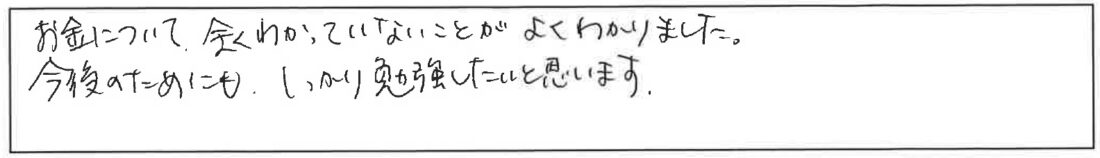 お金について、全くわかっていないことがよくわかりました。
今後のためにも、しっかり勉強したいと思います。